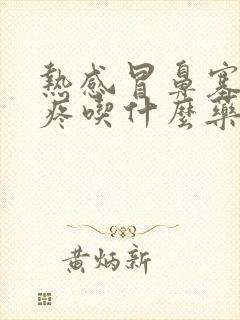 熱感冒鼻塞
疼喫什麼藥
黃炳新